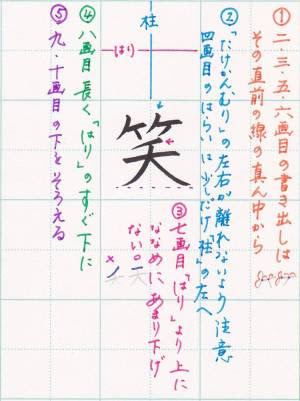 ① 二・三・五・六画目の書き出しは
その直前の線の真ん中から
②「だけかんむり」の左右が離れないよう注意
四画目のはらいは少しだけ「柱」の左へ
柱
はり
笑
③ 七画目「はり」より上に
ななめにあまり下げ
ない。
④ 八画目 長く「はり」のすぐ下に
⑤ 九・十画目の下をそろえる